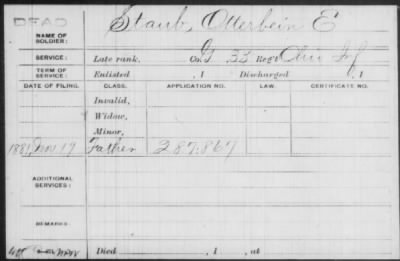 DEAD
NAME OF SOLDIER: Staub, Otterbein E
SERVICE: Late rank, Co. G 33 Reg't Ohio Inf
TERM OF SERVICE: Enlisted , 1 Discharged , 1
DATE OF FILING. CLASS. APPLICATION NO. LAW. CERTIFICATE NO.
Invalid,
Widow,
Minor,
1881, Nov 19 Father 287.867
ADDITIONAL SERVICES:
REMARKS:
Died , 1 , at